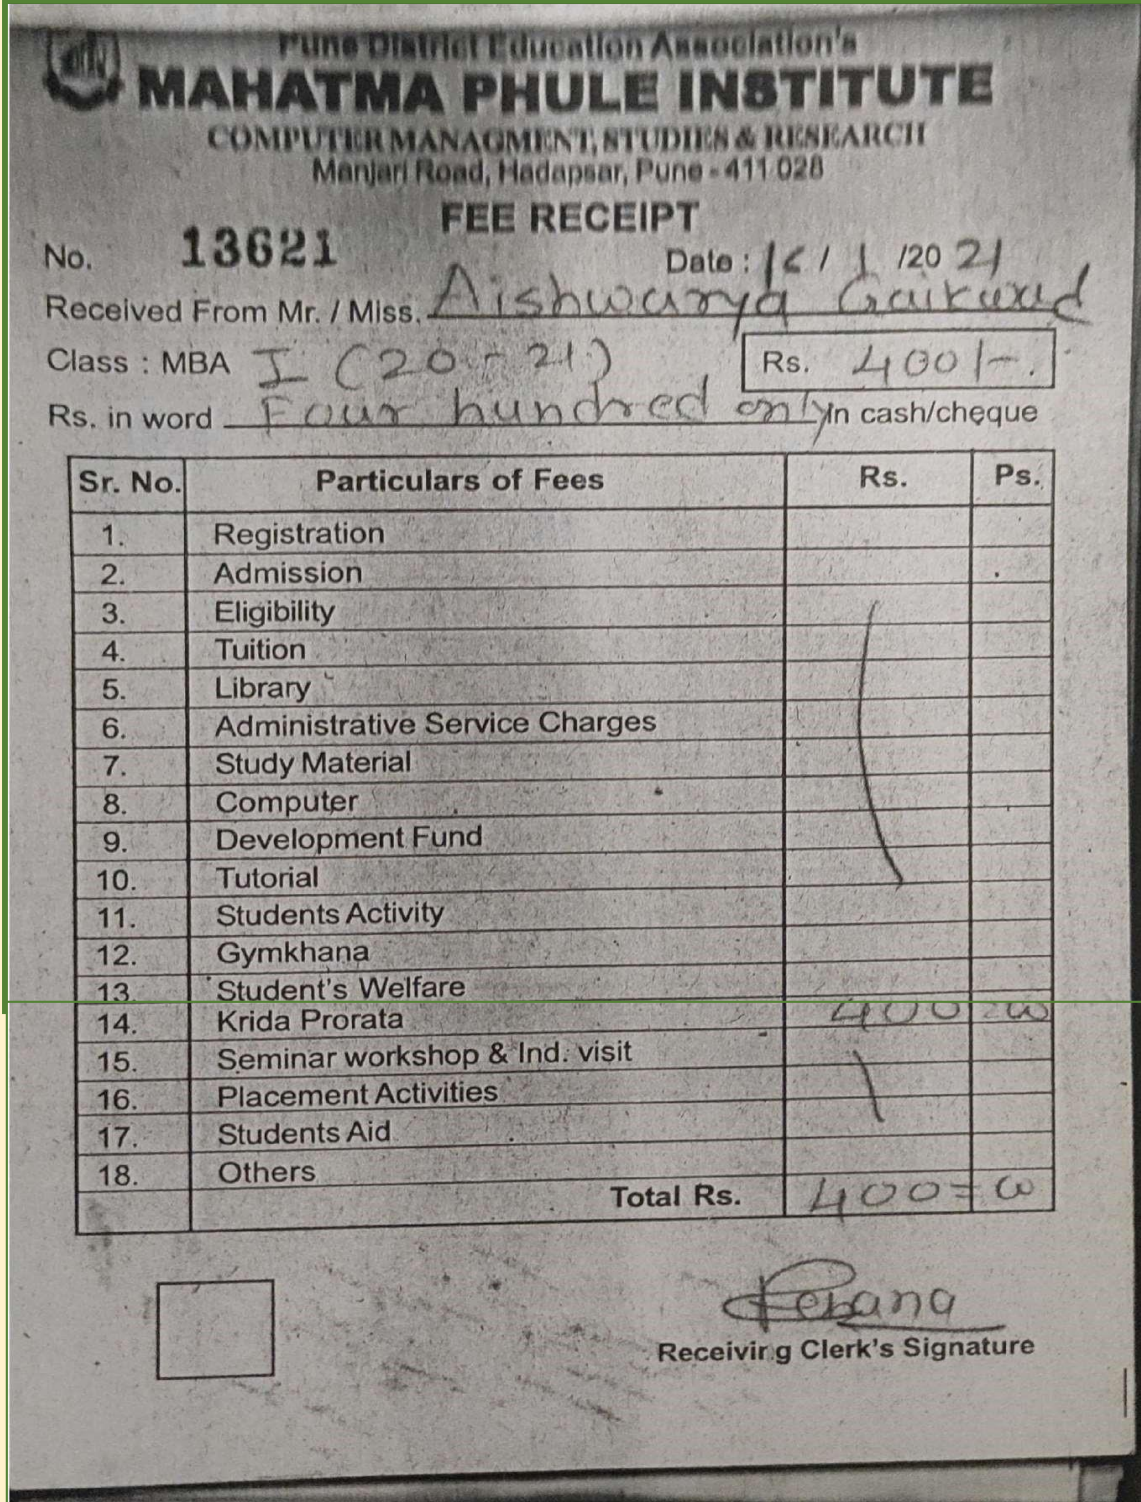 Pune District Education Association's
MAHATMA PHULE INSTITUTE
COMPUTER MANAGMENT, STUDIES & RESEARCH
Manjari Road, Hadapsar, Pune - 411 028
FEE RECEIPT
No. 13621 Date : / 1 /20 21
Received From Mr. / Miss. Aishwarya Gaikwad
Class : MBA I (20-21) Rs. 400/-.
Rs. in word Four hundred only In cash/cheque
Sr. No. Particulars of Fees Rs. Ps.
1. Registration
2. Admission
3. Eligibility
4. Tuition
5. Library
6. Administrative Service Charges
7. Study Material
8. Computer
9. Development Fund
10. Tutorial
11. Students Activity
12. Gymkhana
13. Student's Welfare
14. Krida Prorata 400=00
15. Seminar workshop & Ind. visit
16. Placement Activities
17. Students Aid
18. Others
Total Rs. 400=00
Receiving Clerk's Signature